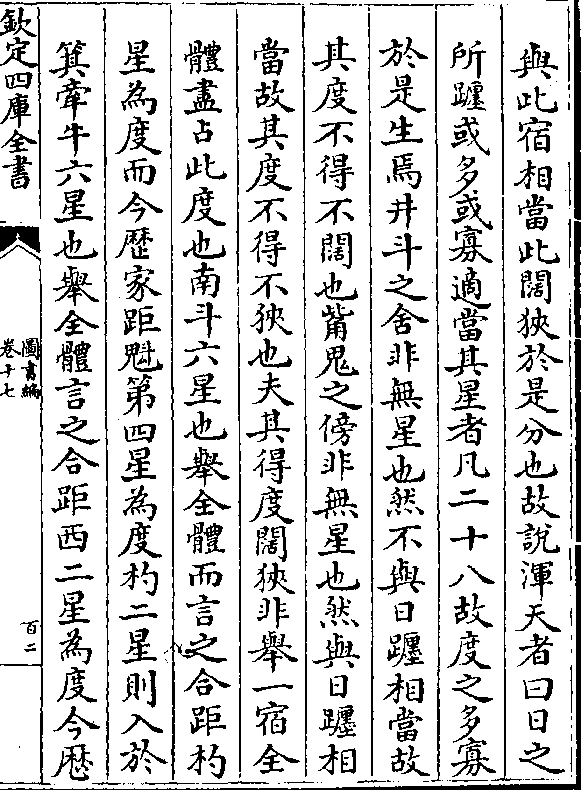 與此宿相當此闊狹於是分也故說渾天者曰日之
所躔或多或寡適當其星者凡二十八故度之多寡
於是生焉井斗之舍非無星也然不與日躔相當故
其度不得不闊也觜鬼之傍非無星也然與日躔相
當故其度不得不狹也夫其得度闊狹非舉一宿全
體盡占此度也南斗六星也舉全體而言之合距杓
星為度而今歷家距魁第四星為度杓二星則入於
箕牽牛六星也舉全體言之合距西二星為度今歷
欽定四庫全書
圖書編
卷十七
百二